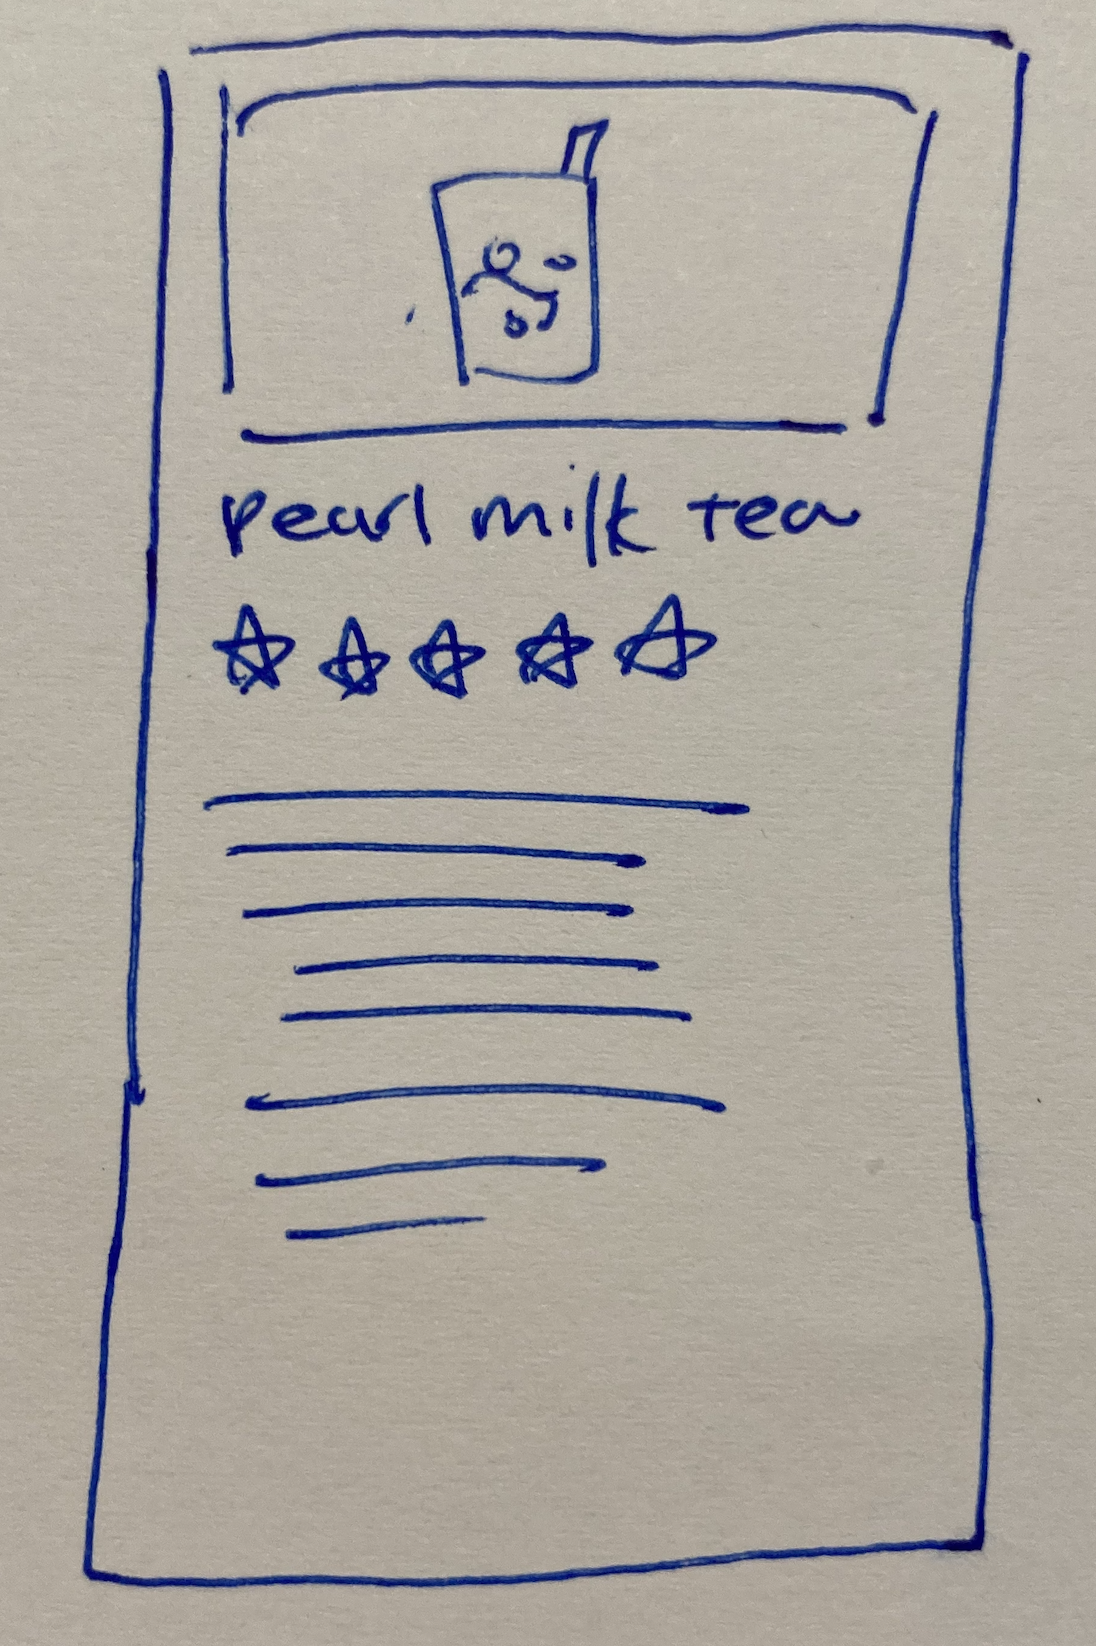 pearl milk tea